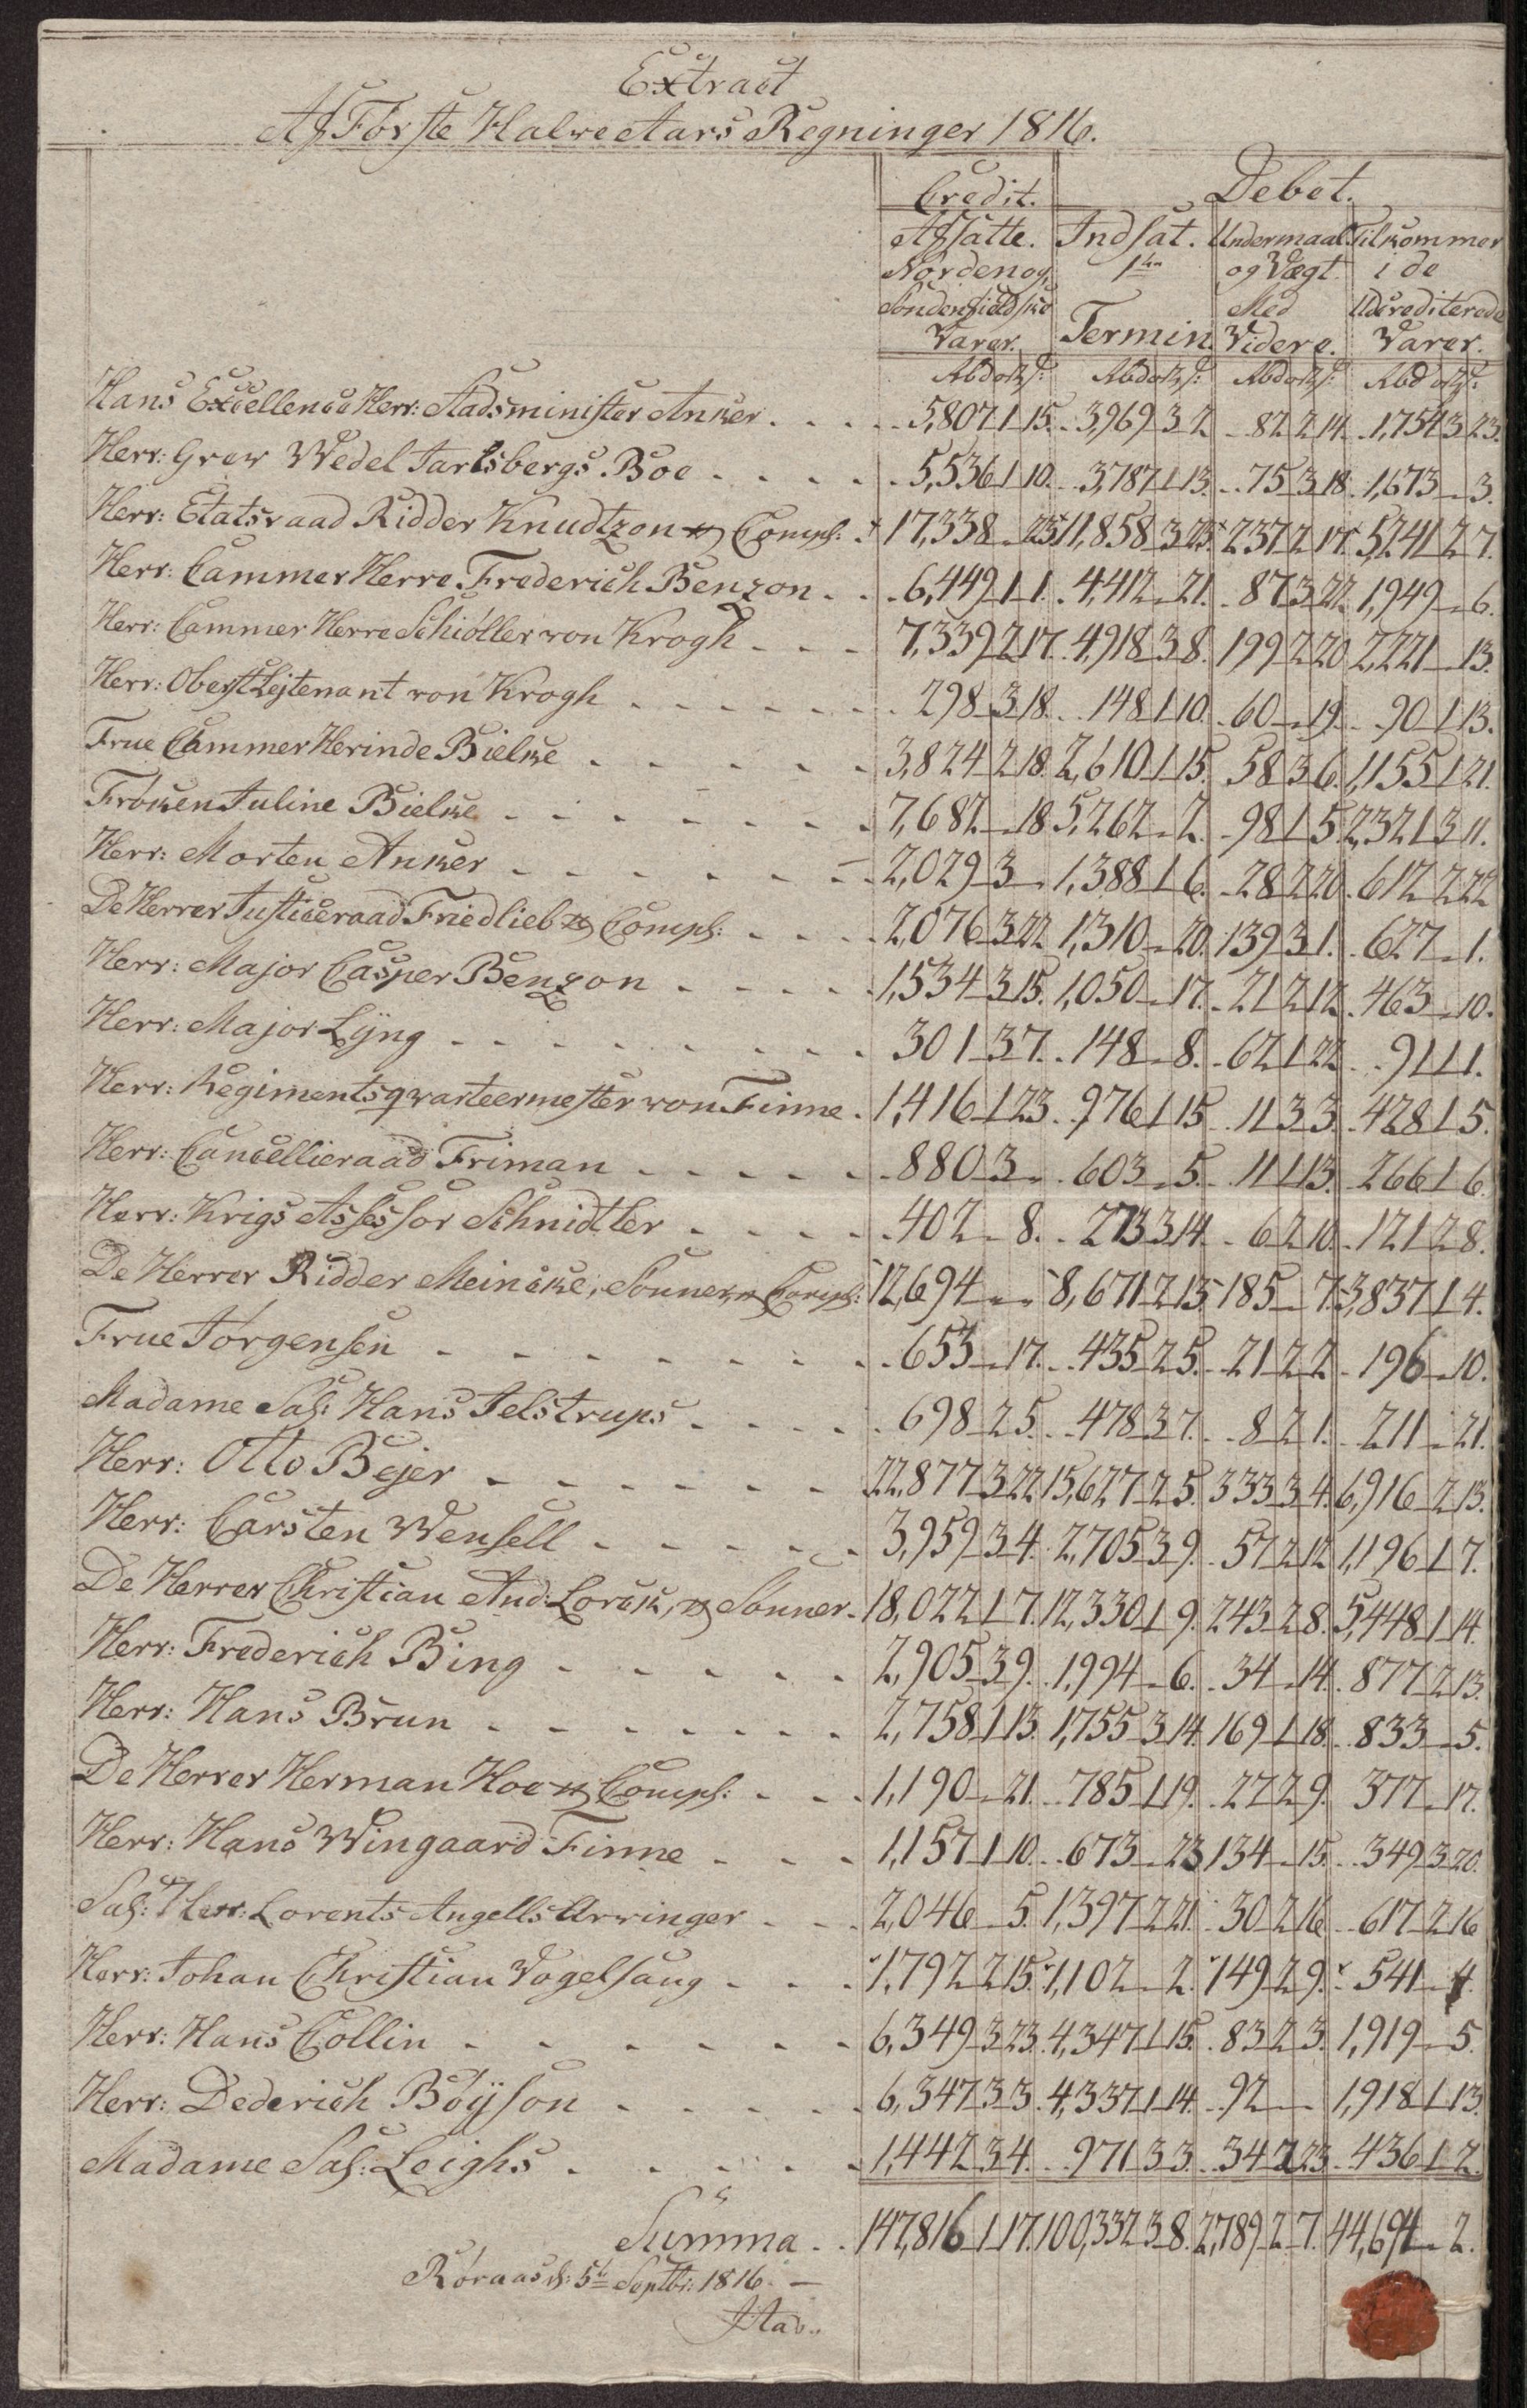 Extract
Af Første Halve Aars Regninger 1816.
Credit. Debet.
Afsatte. Indsat. Undermaal Tilkommer
Norden og 1ste og Vægt. i de
Søndenfieldske Med Udcrediterede
Varer. Termin. Videre. Varer.
Hans Excellence Herr: Stadsminister Anker . . . . 5,807 1 15. 3,969 3 2 82 2 14 1,754 3 23.
Herr: Grev Wedel Jarlsbergs Boe . . . . 5,536 1 10. 3,787 1 13. 75 3 18 1,673 - 3.
Herr: Etatsraad Ridder Knudtzon & Comp: . 17,338 - 23 11,858 3 23 237 2 17 5,241 2 7.
Herr: Cammer Herre Frederich Benzon . . . 6,449 1 1. 4,412 - 21. 87 3 22 1,949 - 6.
Herr: Cammer Herre Schiøller von Krogh . . . 7,339 2 17 4,918 3 8. 199 2 20 2,221 - 13.
Herr: Oberst Lejtenant von Krogh . . . . . . 298 3 18. 148 1 10. 60 - 19. 90 1 13.
Frue Cammer Herinde Bielke . . . . . 3,824 2 18 2,610 1 15. 58 3 6. 1,155 1 21.
Frøken Juline Bielke . . . . . . . 7,682 - 18 5,262 - 2. 98 1 5 2,321 3 11.
Herr: Morten Anker . . . . . . . 2,029 3 - 1,388 1 6. 28 2 20 612 2 22
De Herrer Justiceraad Friedlieb & Comp: . . . . 2,076 3 22 1,310 - 20. 139 3 1. 627 - 1.
Herr: Major Casper Benzon . . . . . 1,534 3 15. 1,050 - 17. 21 2 12 463 - 10.
Herr: Major Lÿng . . . . . . . . 301 3 7. 148 - 8. 62 1 22 91 1 1.
Herr: Regimentsqvarteermester von Finne . 1,416 1 23. 976 1 15 11 3 3. 428 1 5.
Herr: Cancellieraad Friman . . . . . 880 3 - 603 - 5. 11 1 13. 266 1 6.
Herr: Krigs Assessor Schnidtler . . . . 402 - 8. 273 3 14. 6 2 10. 121 2 8.
De Herrer Ridder Meincke, Sønner, & Comp: 12,694 - - 8,671 2 13 185 - 7. 3,837 1 4.
Frue Jørgensen . . . . . . . . 653 - 17. 435 2 5. 21 2 2 196 - 10.
Madame Sal: Hans Jelstrups . . . . . 698 2 5. 478 3 7. 8 2 1. 211 - 21.
Herr: Otto Bejer . . . . . . . 22,877 3 22 15,627 2 5. 333 3 4. 6,916 2 13.
Herr: Carsten Wensell . . . . . . 3,959 3 4. 2,705 3 9. 57 2 12 1,196 1 7.
De Herrer Christian And: Lorck, & Sønner . 18,022 1 7. 12,330 1 9. 243 2 8. 5,448 1 14.
Herr: Frederich Bing . . . . . . 2,905 3 9. 1,994 - 6. 34 - 14. 877 2 13.
Herr: Hans Brun . . . . . . . 2,758 1 13. 1,755 3 14. 169 1 18. 833 - 5.
De Herrer Herman Hoe & Comp: . . . 1,190 - 21. 785 1 19. 27 2 9. 377 - 17.
Herr: Hans Wingaard Finne . . . 1,157 1 10. 673 - 23 134 - 15. 349 3 20.
Sal: Herr: Lorents Angells Arvinger . . . 2,046 - 5. 1,397 2 21. 30 2 16 617 2 16
Herr: Johan Christian Vogelsang . . . 1,792 2 15. 1,102 - 2. 149 2 9. 541 - 4.
Herr: Hans Collin . . . . . . 6,349 3 23. 4,347 1 15. 83 2 3. 1,919 - 5.
Herr: Dederich Bøÿson . . . . . 6,347 3 3. 4,337 1 14. 92 - - 1,918 1 13.
Madame Sal: Leighs . . . . . 1,442 3 4. 971 3 3. 34 2 23. 436 1 2.
Summa . . 147,816 1 17. 100,332 3 8. 2,789 2 7. 44,694 - 2.
Røraas d: 5te Septbr: 1816. -